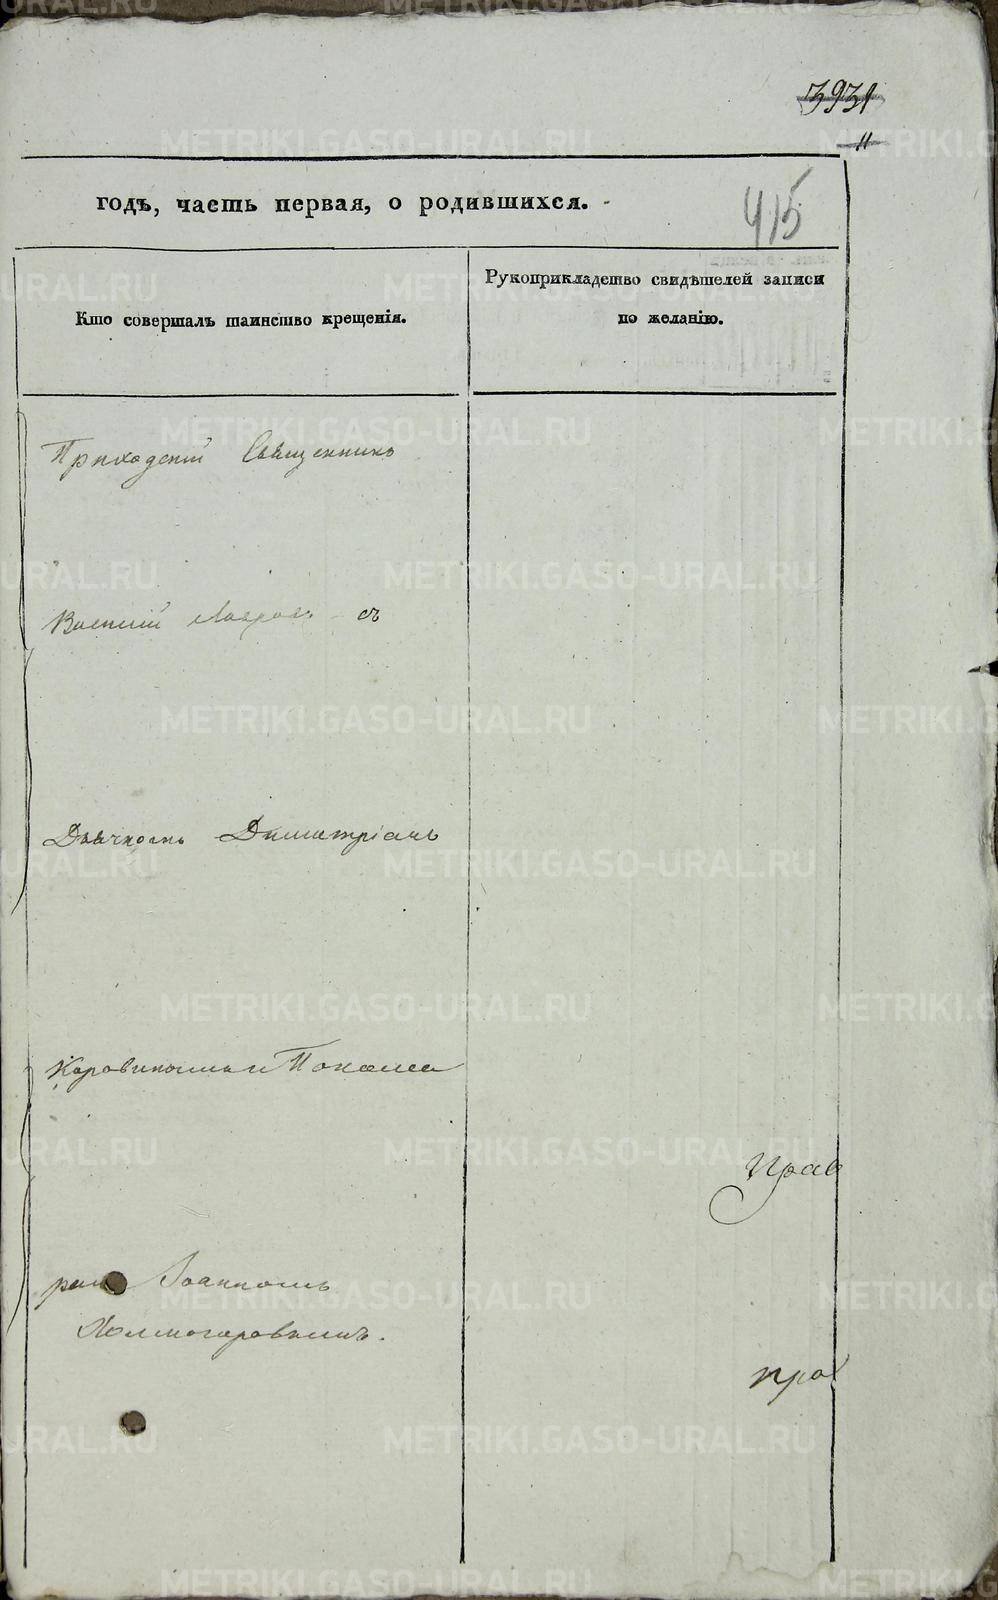 3931
11
годъ, часть первая, о родившихся.
415
Кто совершалъ таинство крещенія.
Рукоприкладство свидѣтелей записи
по желанію.
Приходскій Священникъ
Василій Лавровъ съ
Дьячкомъ Димитріемъ
и Понома
Прав
ремъ Іоанномъ
Холмогоровымъ.
пра
METRIKI.GASO-URAL.RU